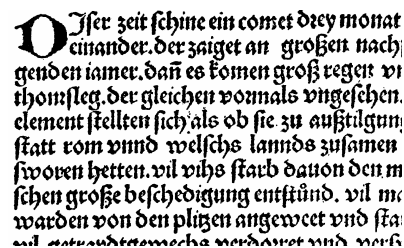 DJser zeit schine ein comet drey monat
einander. der zaiget an großen nach
genden iamer. dañ es komen groß regen vn
thornsleg. der gleichen vormals vngesehen.
element stellten sich als ob sie zu außtilgung
statt rom vnnd welschs lannds zusamen
sworen hetten. vil vihs starb dauon den m
schen große beschedigung entstůnd. vil m
warden von den plitzen angewcet vnd sta
vil getraydtgewechs verdorret vnd